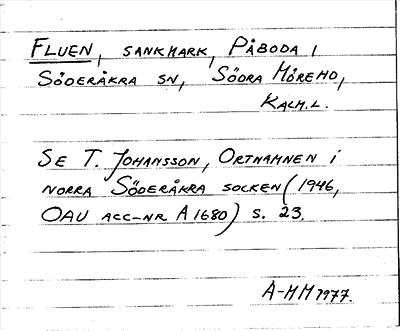 FLUEN, SANKMARK, PÅBODA I
SÖDERÅKRA SN, SÖDRA MÖRE HD,
KALM.L.
SE T. JOHANSSON, ORTNAMNEN I
NORRA SÖDERÅKRA SOCKEN (1946,
OAU ACC-NR A1680) S. 23.
A-MM 1977.